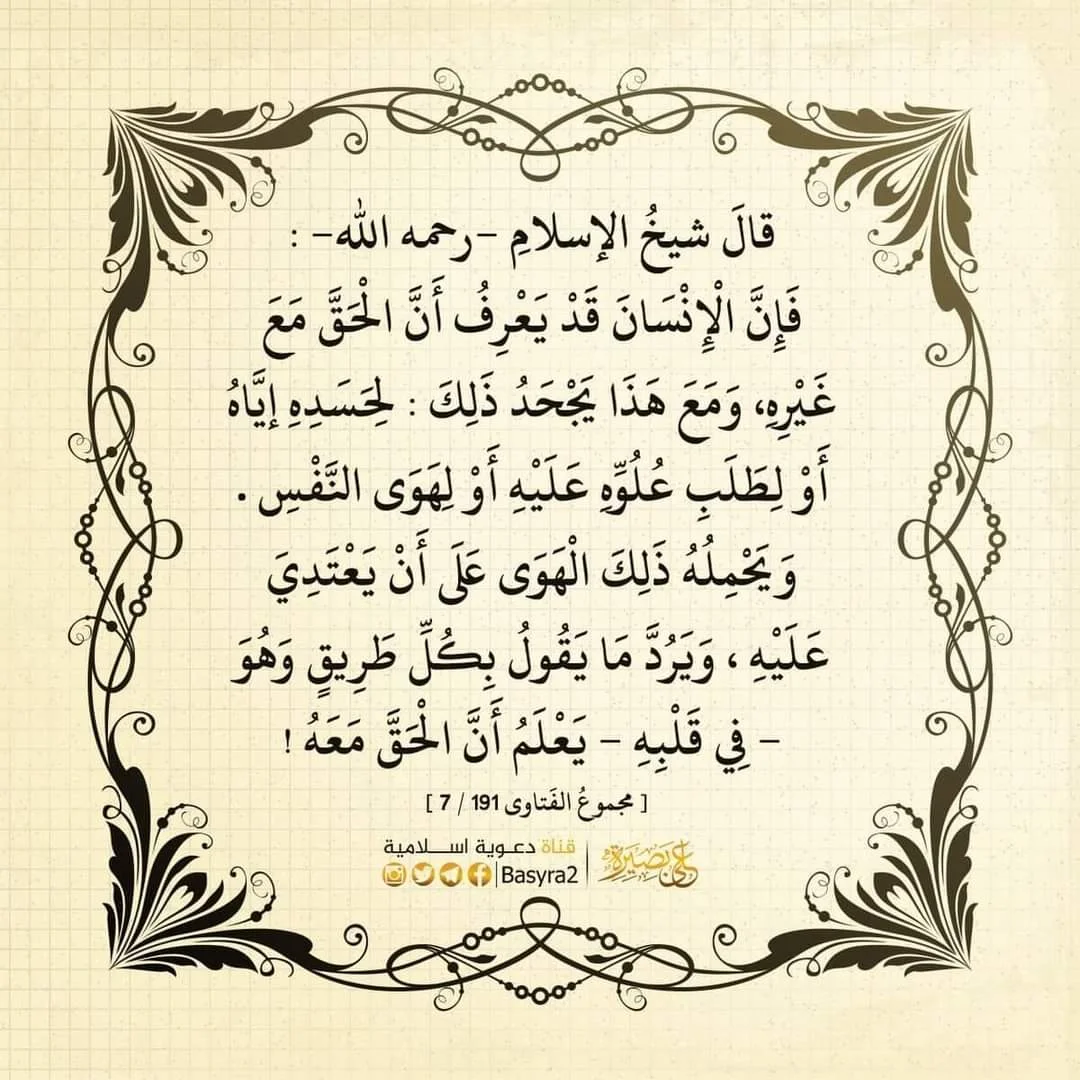 قالَ شيخُ الإسلامِ –رحمه الله– :
فَإِنَّ الْإِنْسَانَ قَدْ يَعْرِفُ أَنَّ الْحَقَّ مَعَ
غَيْرِهِ، وَمَعَ هَذَا يَجْحَدُ ذَلِكَ : لِحَسَدِهِ إيَّاهُ
أَوْ لِطَلَبِ عُلُوِّهِ عَلَيْهِ أَوْ لِهَوَى النَّفْسِ .
وَيَحْمِلُهُ ذَلِكَ الْهَوَى عَلَى أَنْ يَعْتَدِيَ
عَلَيْهِ ، وَيَرُدَّ مَا يَقُولُ بِكُلِّ طَرِيقٍ وَهُوَ
– فِي قَلْبِهِ – يَعْلَمُ أَنَّ الْحَقَّ مَعَهُ !
[ مجموعُ الفَتاوى 191 / 7 ]
على بَصِيرَة
قناة دعوية اسـلامية
Basyra2